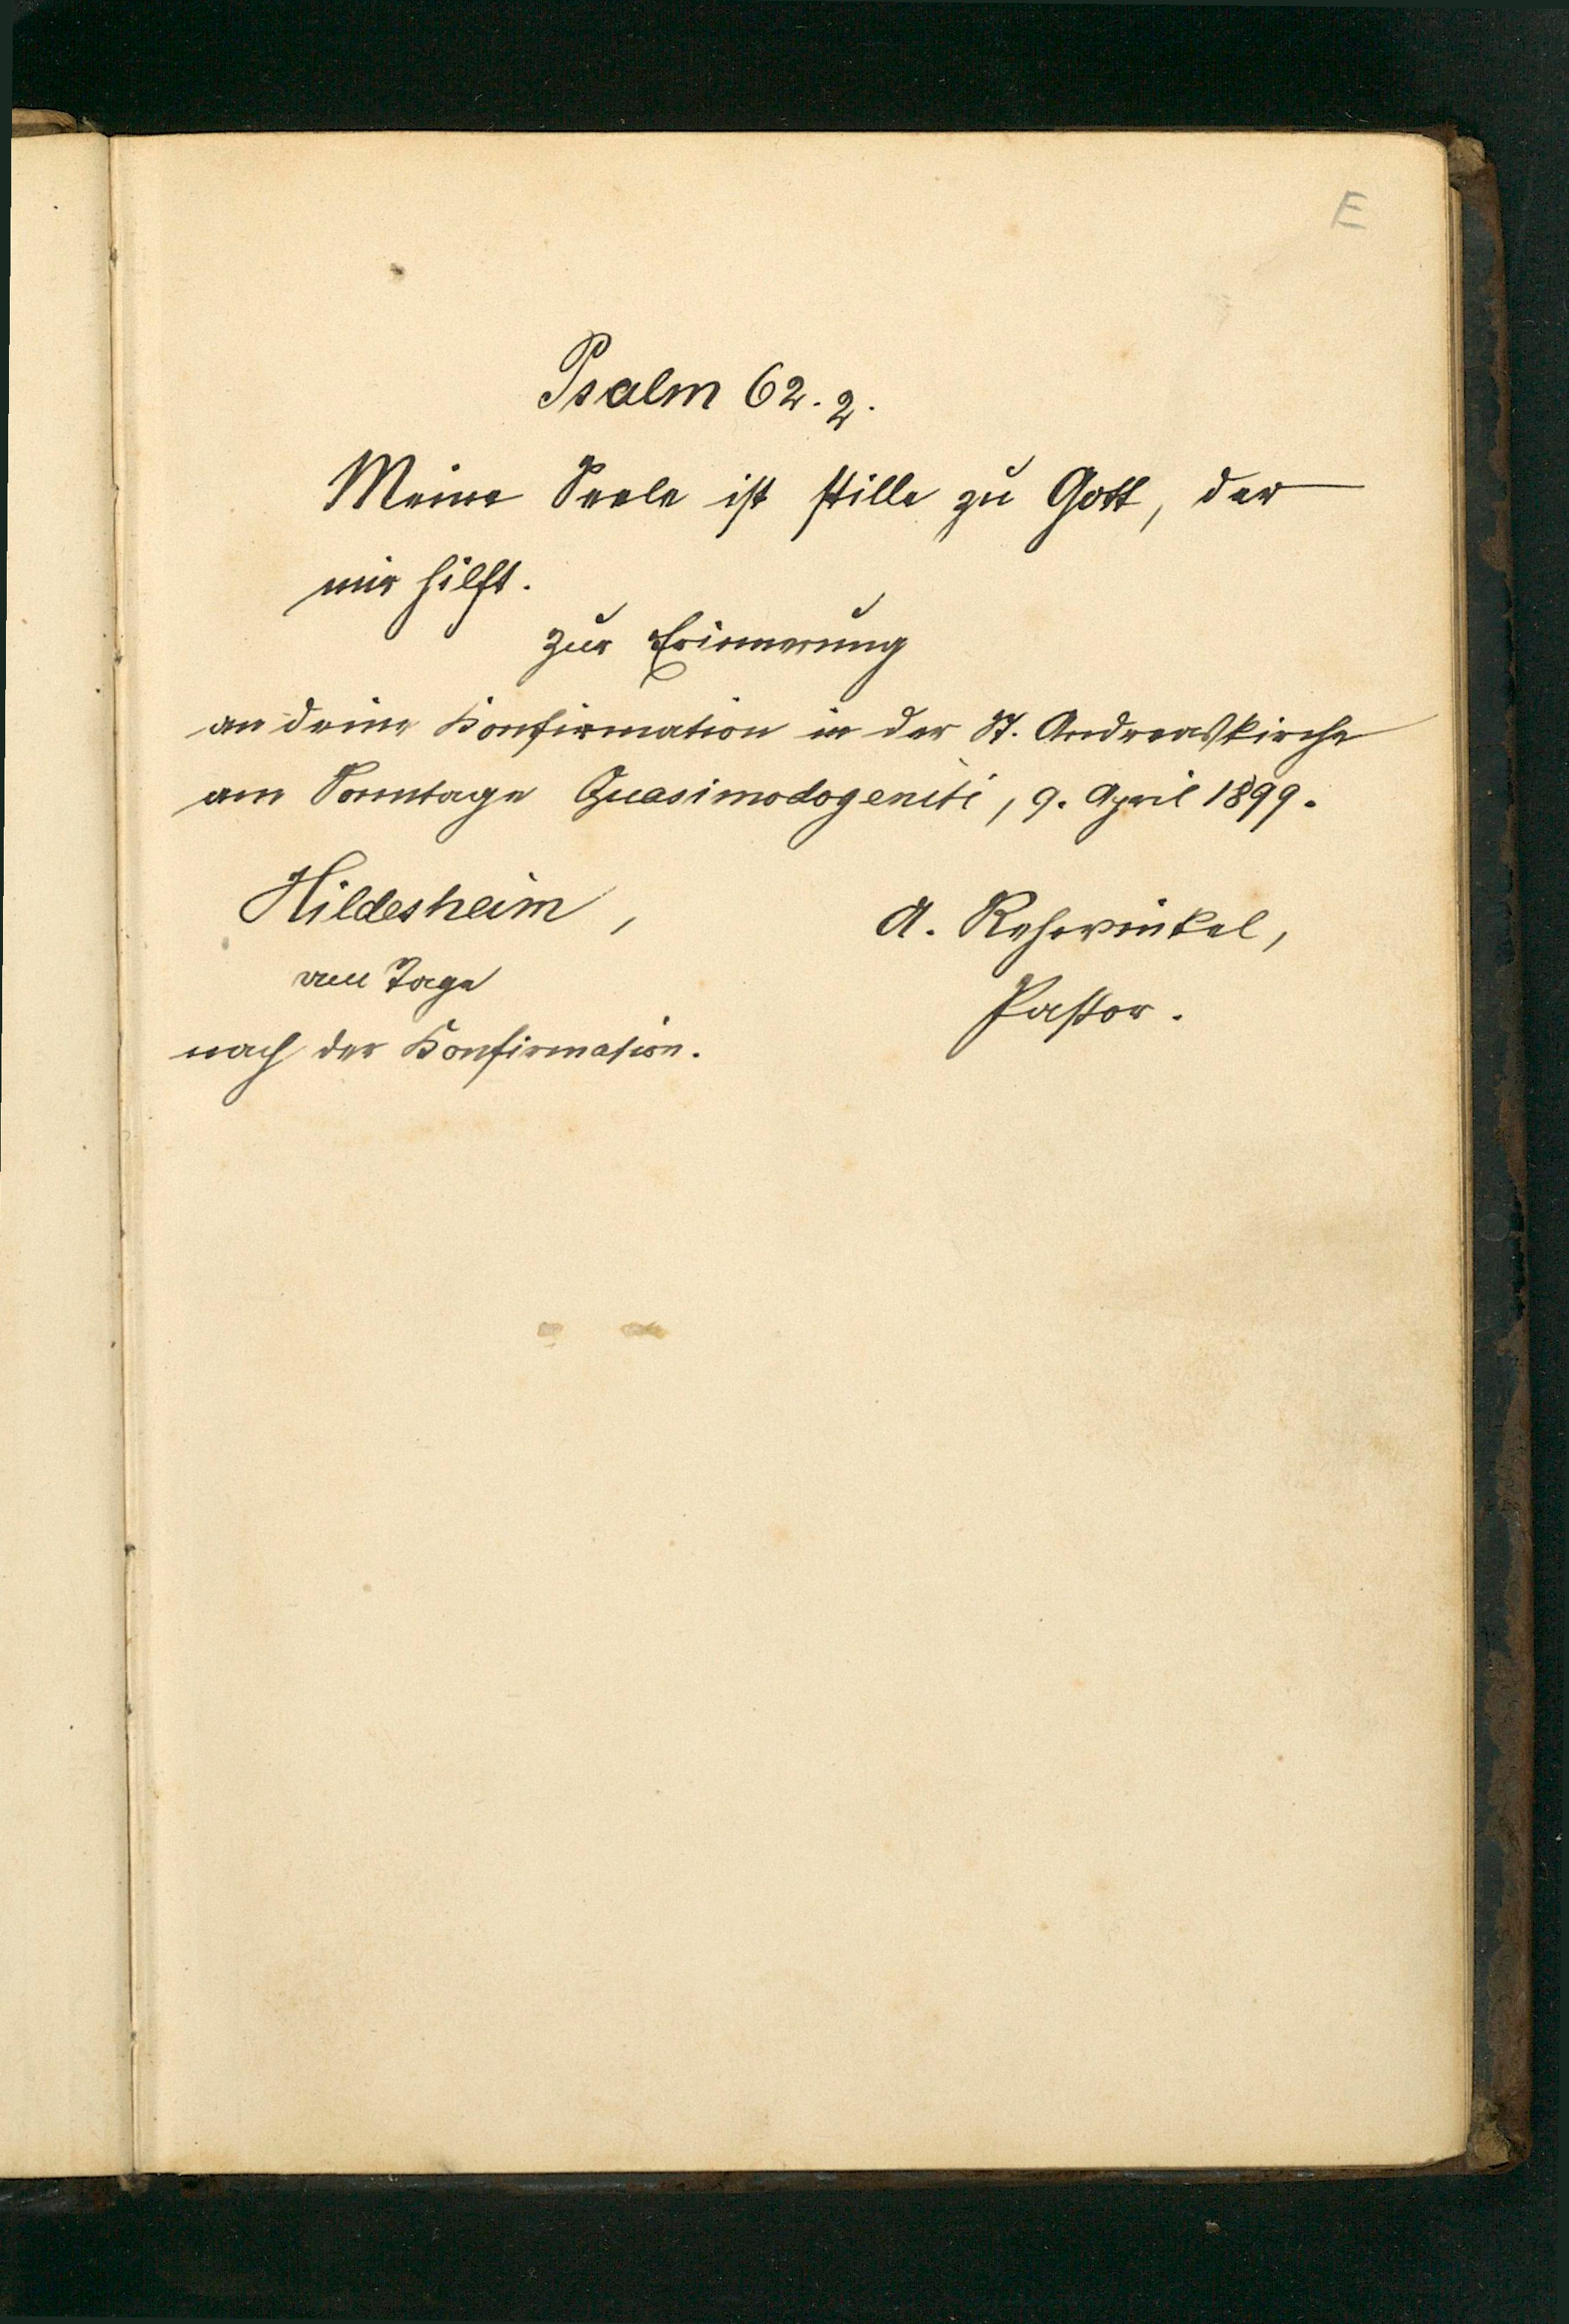 E
Psalm 62.2.
Meine Seele ist stille zu Gott, der
mir hilft.
Zur Erinnerung
an deine Konfirmation in der St. Andreaskirche
am Sonntage Quasimodogeniti, 9. April 1899.
Hildesheim,
A. Rehwinkel,
am Tage
Pastor.
nach der Konfirmation.